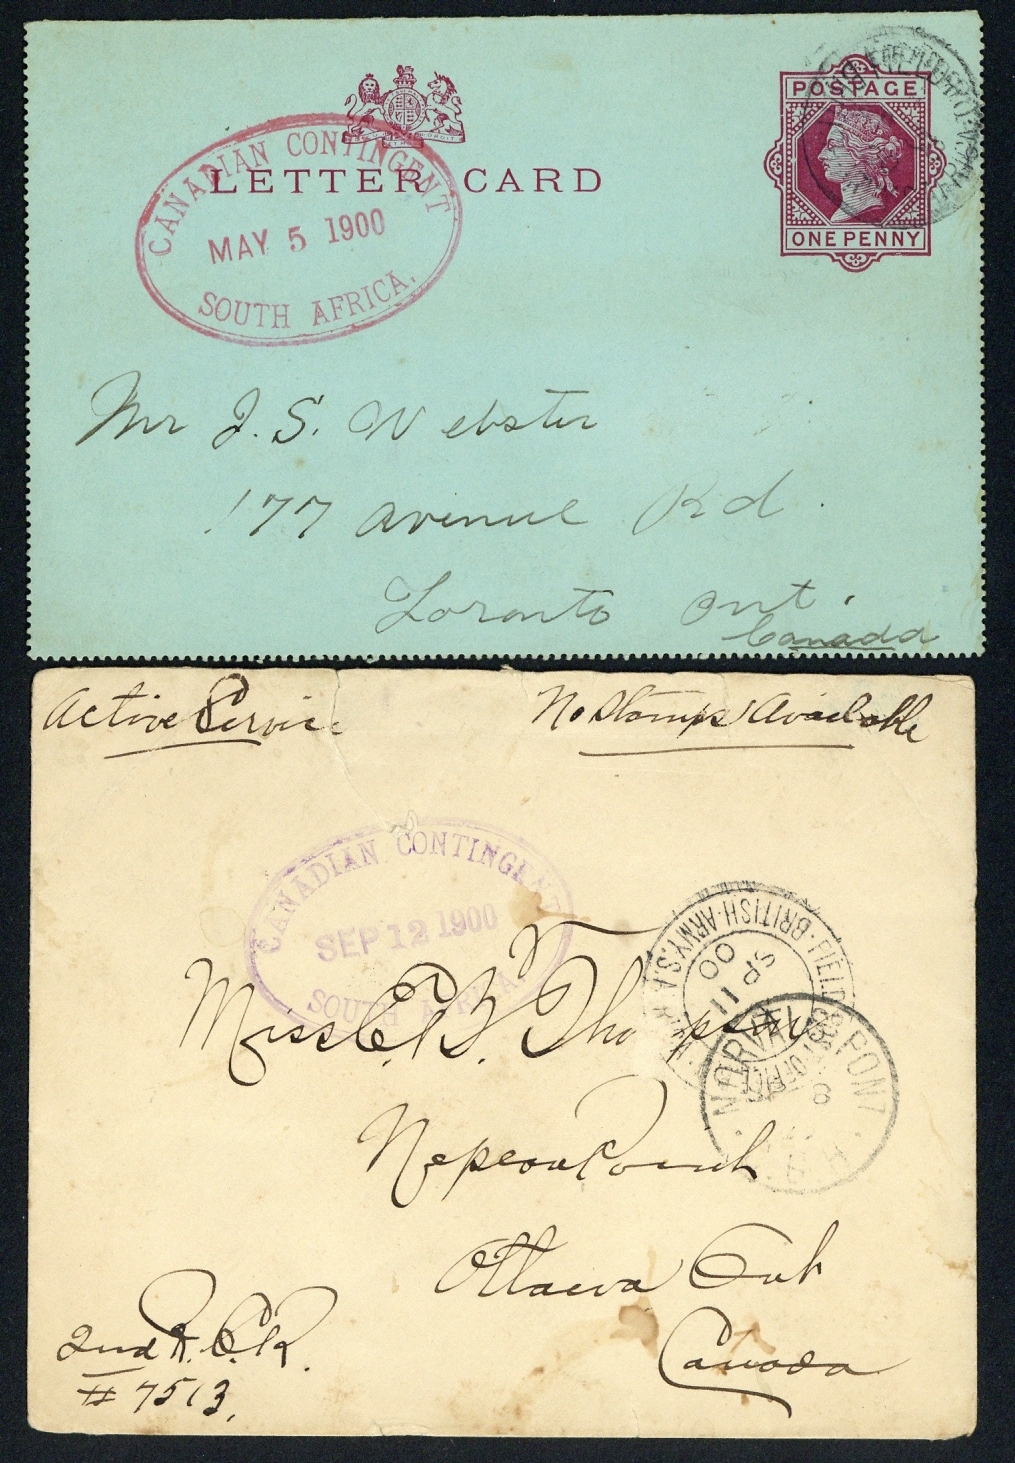 POSTAGE
LETTER CARD
ONE PENNY
CANADIAN CONTINGENT
MAY 5 1900
SOUTH AFRICA.
Mr J. S. Webster
177 Avenue Rd.
Toronto Ont.
Canada
Active Service
No Stamps Available
CANADIAN CONTINGENT
SEP 12 1900
SOUTH AFRICA.
FIELD POST OFFICE · BRITISH · ARMY · S. A
SP 11
00
NORVALS PONT
8
Miss E. B. Thompson
Nepean Point
Ottawa Ont
Canada
2nd R.C.R.
# 7513.